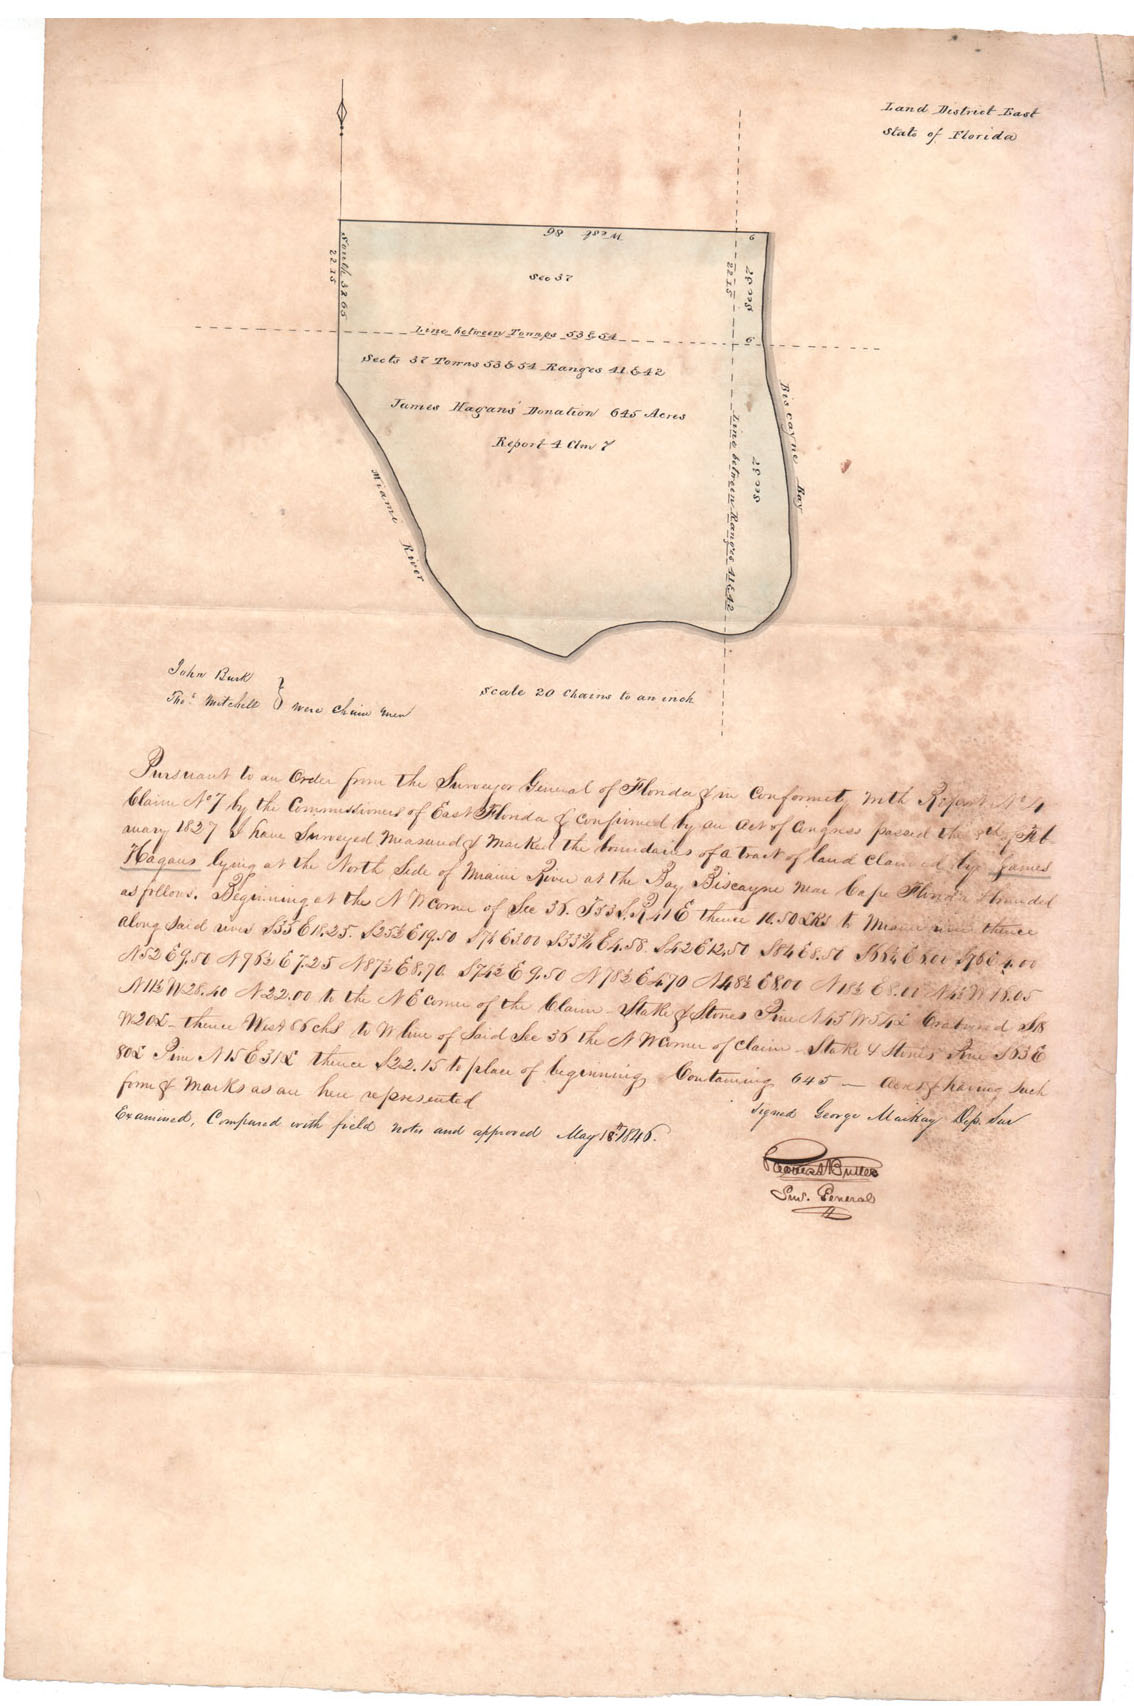 Land District East
State of Florida
West 86
6
South 32 65
22.15
Sec 37
22.15
Sec 37
Line between Townps 53 & 54
6
Sects 37 Towns 53 & 54 Ranges 41 & 42
James Hagans' Donation 645 Acres
Report 4 Clm 7
Biscayne Bay
Line between Ranges 41 & 42
Sec 37
Miami River
John Burk
Thos. Mitchell } were Chain men
Scale 20 Chains to an inch
Pursuant to an Order from the Surveyor General of Florida & in Conformity with Report No 4
Claim No 7 by the Commissioners of East Florida & confirmed by an Act of Congress passed the 8th of Feb
ruary 1827 I have Surveyed Measured & Marked the boundaries of a tract of land claimed by James
Hagans lying at the North Side of Miami River at the Bay Biscayne near Cape Florida & bounded
as follows. Beginning at the N W Corner of Sec 36. T 53 S. R 41 E thence 10.50 Lks to Miami river thence
along Said river S 33 E 18.25. S 25½ E 19.50 S 7½ E 3.00 S 53¾ E 4.58 S 42 E 12.50 S 84 E 8.50 E 8.00 S 76 E 4.00
N 52 E 9.50 N 76½ E 7.25 N 87½ E 8.70 S 74½ E 9.50 N 78½ E 4.70 N 48½ E 8.00 N 18½ E 8.00 N 4½ W 18.05
N 11½ W 28.40 N 22.00 to the N E corner of the Claim - Stake & Stones Pine N 45 W 54 L S 18
W 20 L - thence West 86 chs to W line of Said Sec 36 the N W corner of claim - Stake & Stones Pine S 63 E
80 L Pine N 15 E 31 L thence S 22.15 to place of beginning Containing 645 — Acres & having Such
form & Marks as are here represented
Signed George Mackay Dep. Sur
Examined, Compared with field notes and approved May 18th 1846.
Robert Butler
Surv. General